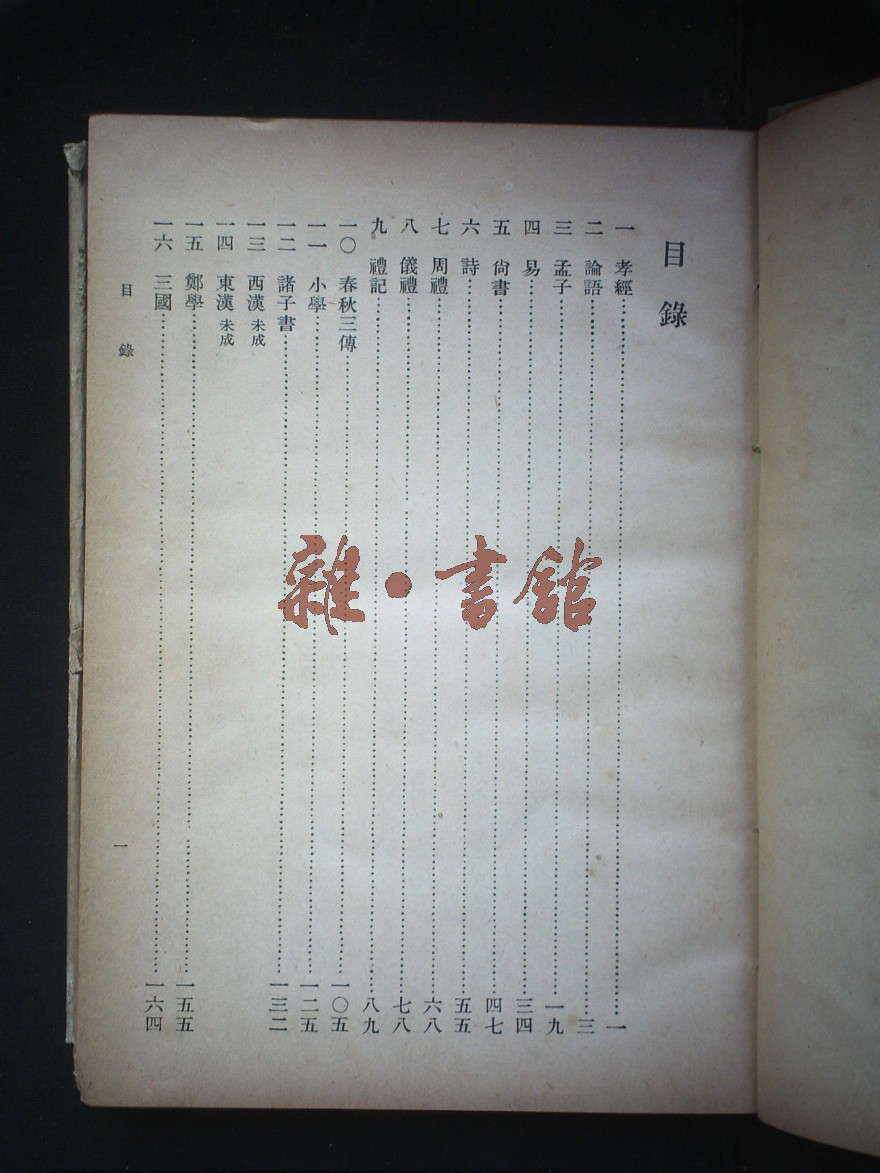 目錄
一 孝經……一
二 論語……三
三 孟子……一九
四 易……三四
五 尙書……四七
六 詩……五五
七 周禮……六八
八 儀禮……七八
九 禮記……八九
一〇 春秋三傳……一〇五
一一 小學……一二五
一二 諸子書……一三二
一三 西漢 未成
一四 東漢 未成
一五 鄭學……一五五
一六 三國……一六四
目錄
一
雜·書館